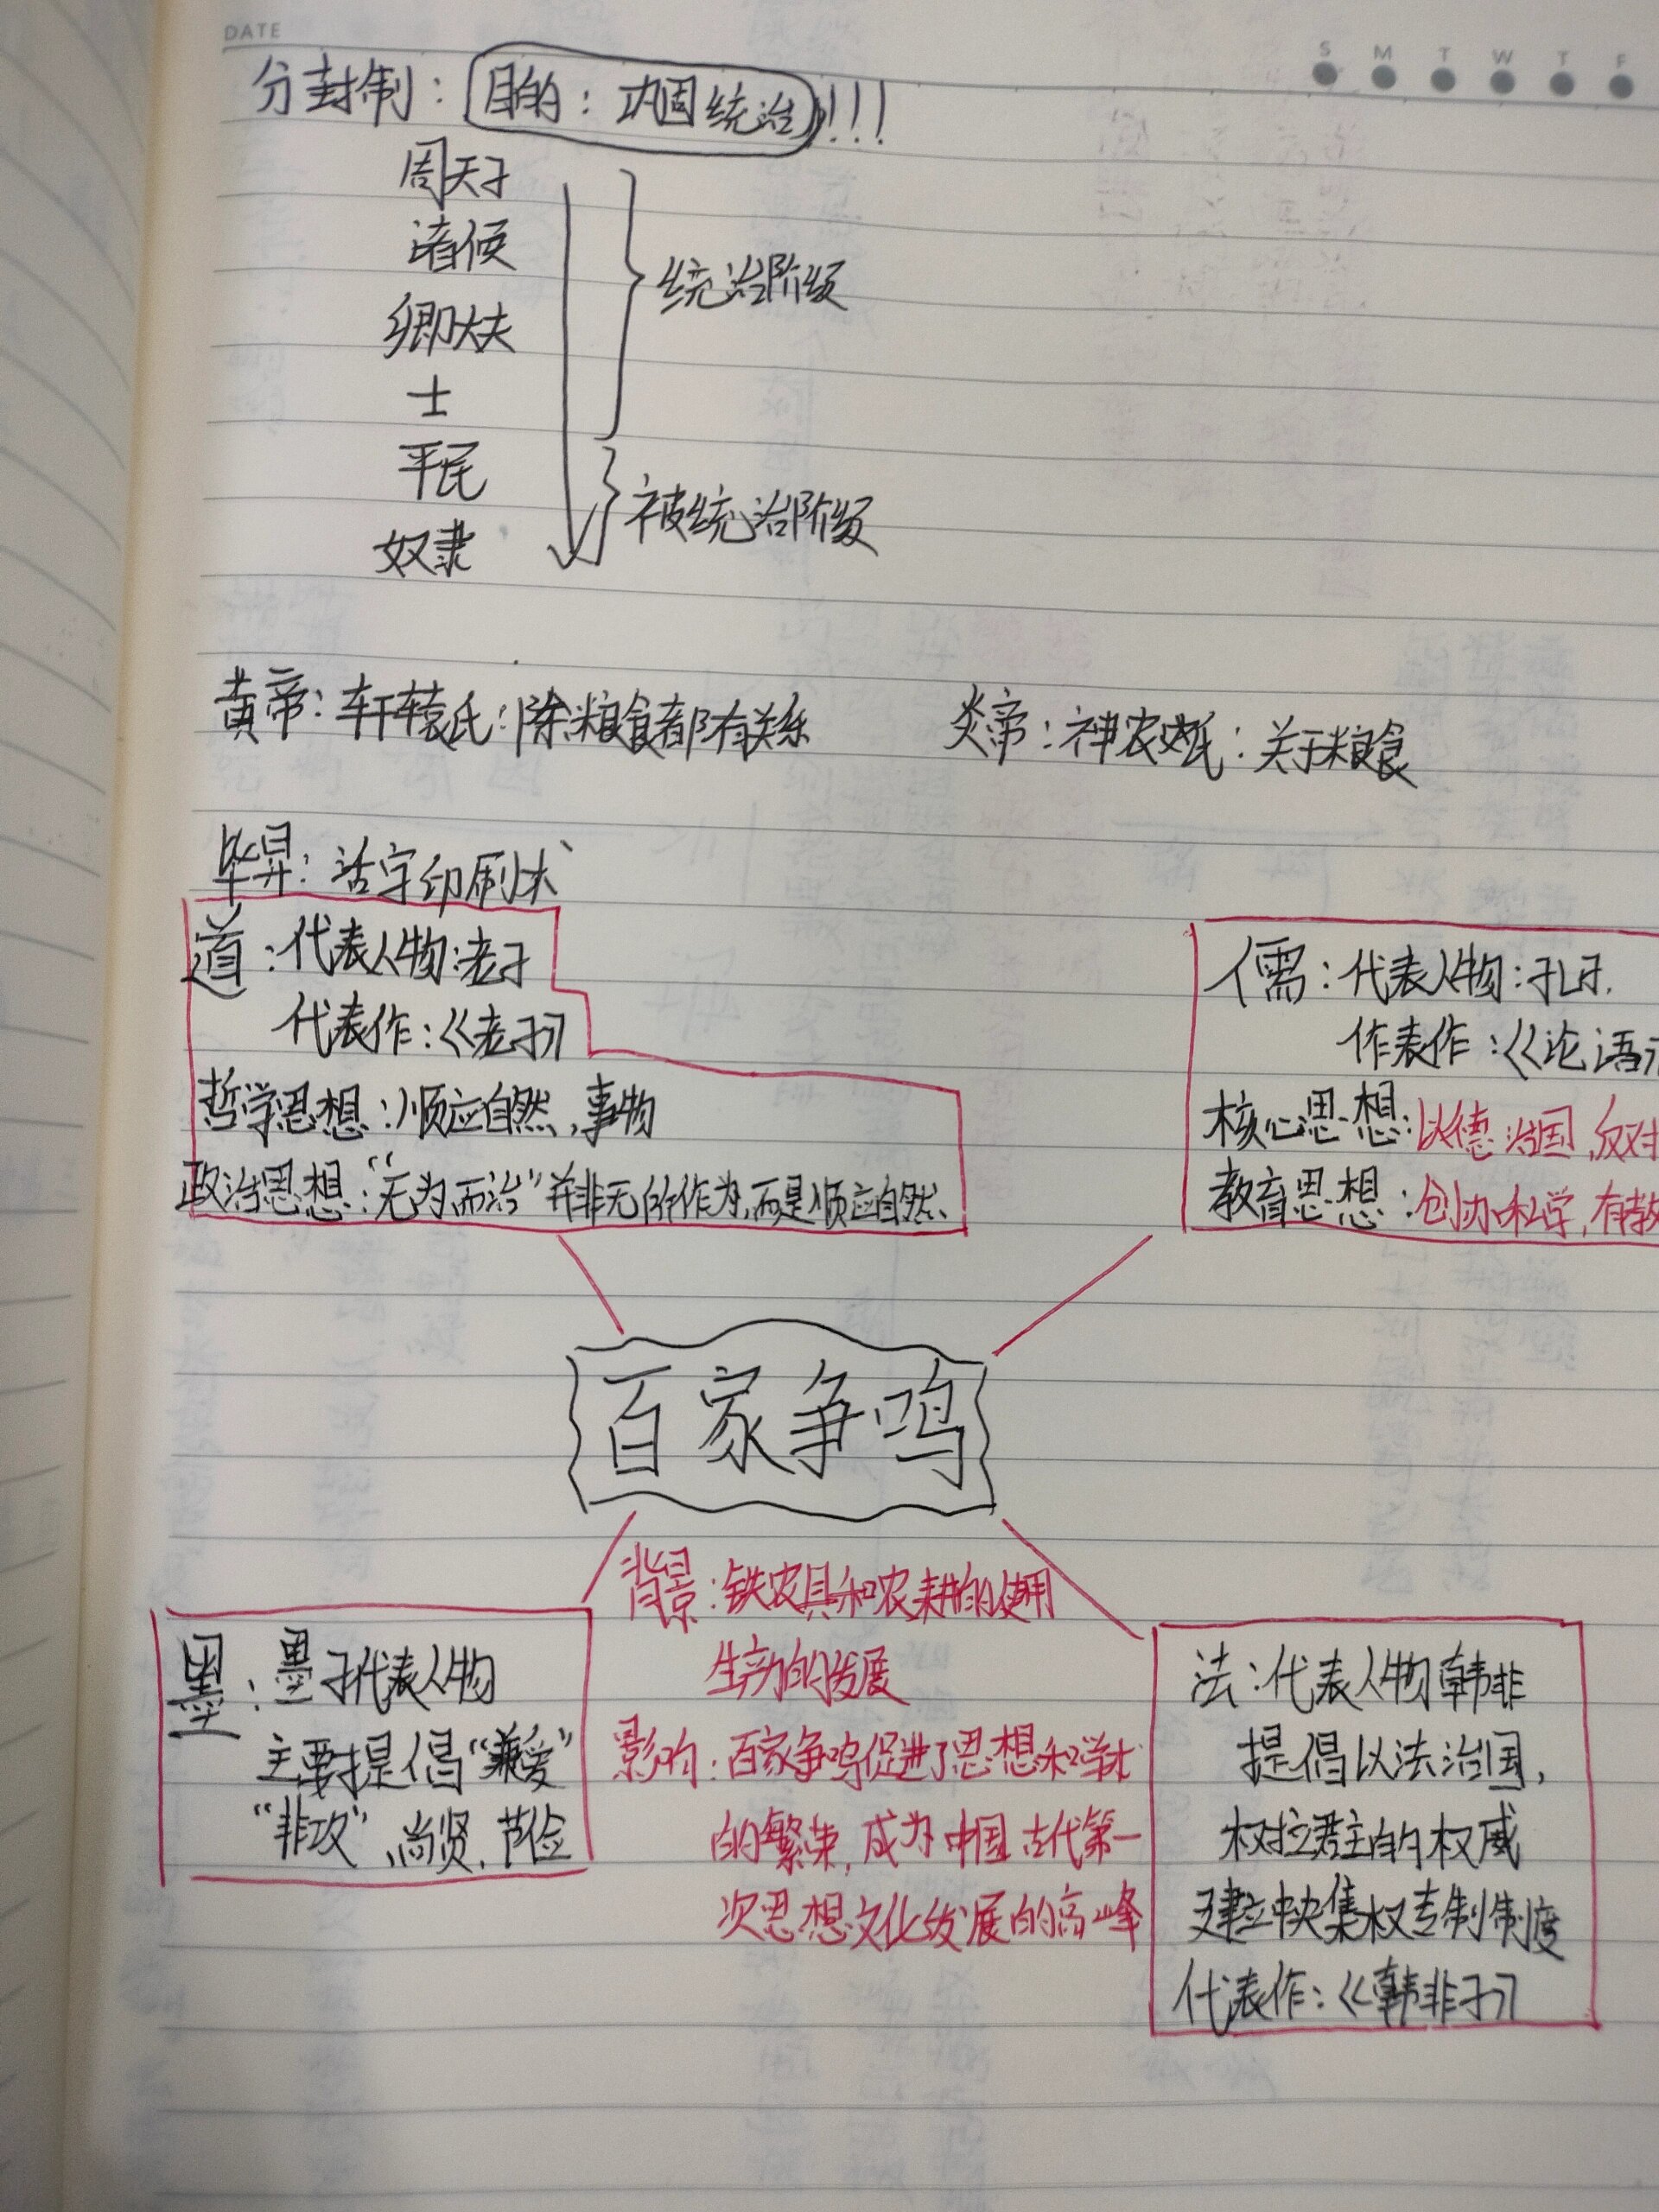 DATE
S M T W T F
分封制：目的：巩固统治!!!
周天子
诸侯
卿大夫
士
平民
奴隶
统治阶级
被统治阶级
黄帝：轩辕氏：除粮食都有关系
炎帝：神农氏：关于粮食
毕昇：活字印刷术
道：代表人物：老子
代表作：《老子》
哲学思想：顺应自然、事物
政治思想：“无为而治”并非无所作为，而是顺应自然、
儒：代表人物：孔子.
作表作：《论语》
核心思想：以德治国，反对
教育思想：创办私学，有教
百家争鸣
背景：铁农具和农耕的使用
生产力的发展
影响：百家争鸣促进了思想和学术
的繁荣，成为中国古代第一
次思想文化发展的高峰
墨：墨子代表人物
主要提倡“兼爱”
“非攻”、尚贤、节俭
法：代表人物韩非
提倡以法治国，
君主的权威
建立中央集权专制制度
代表作：《韩非子》